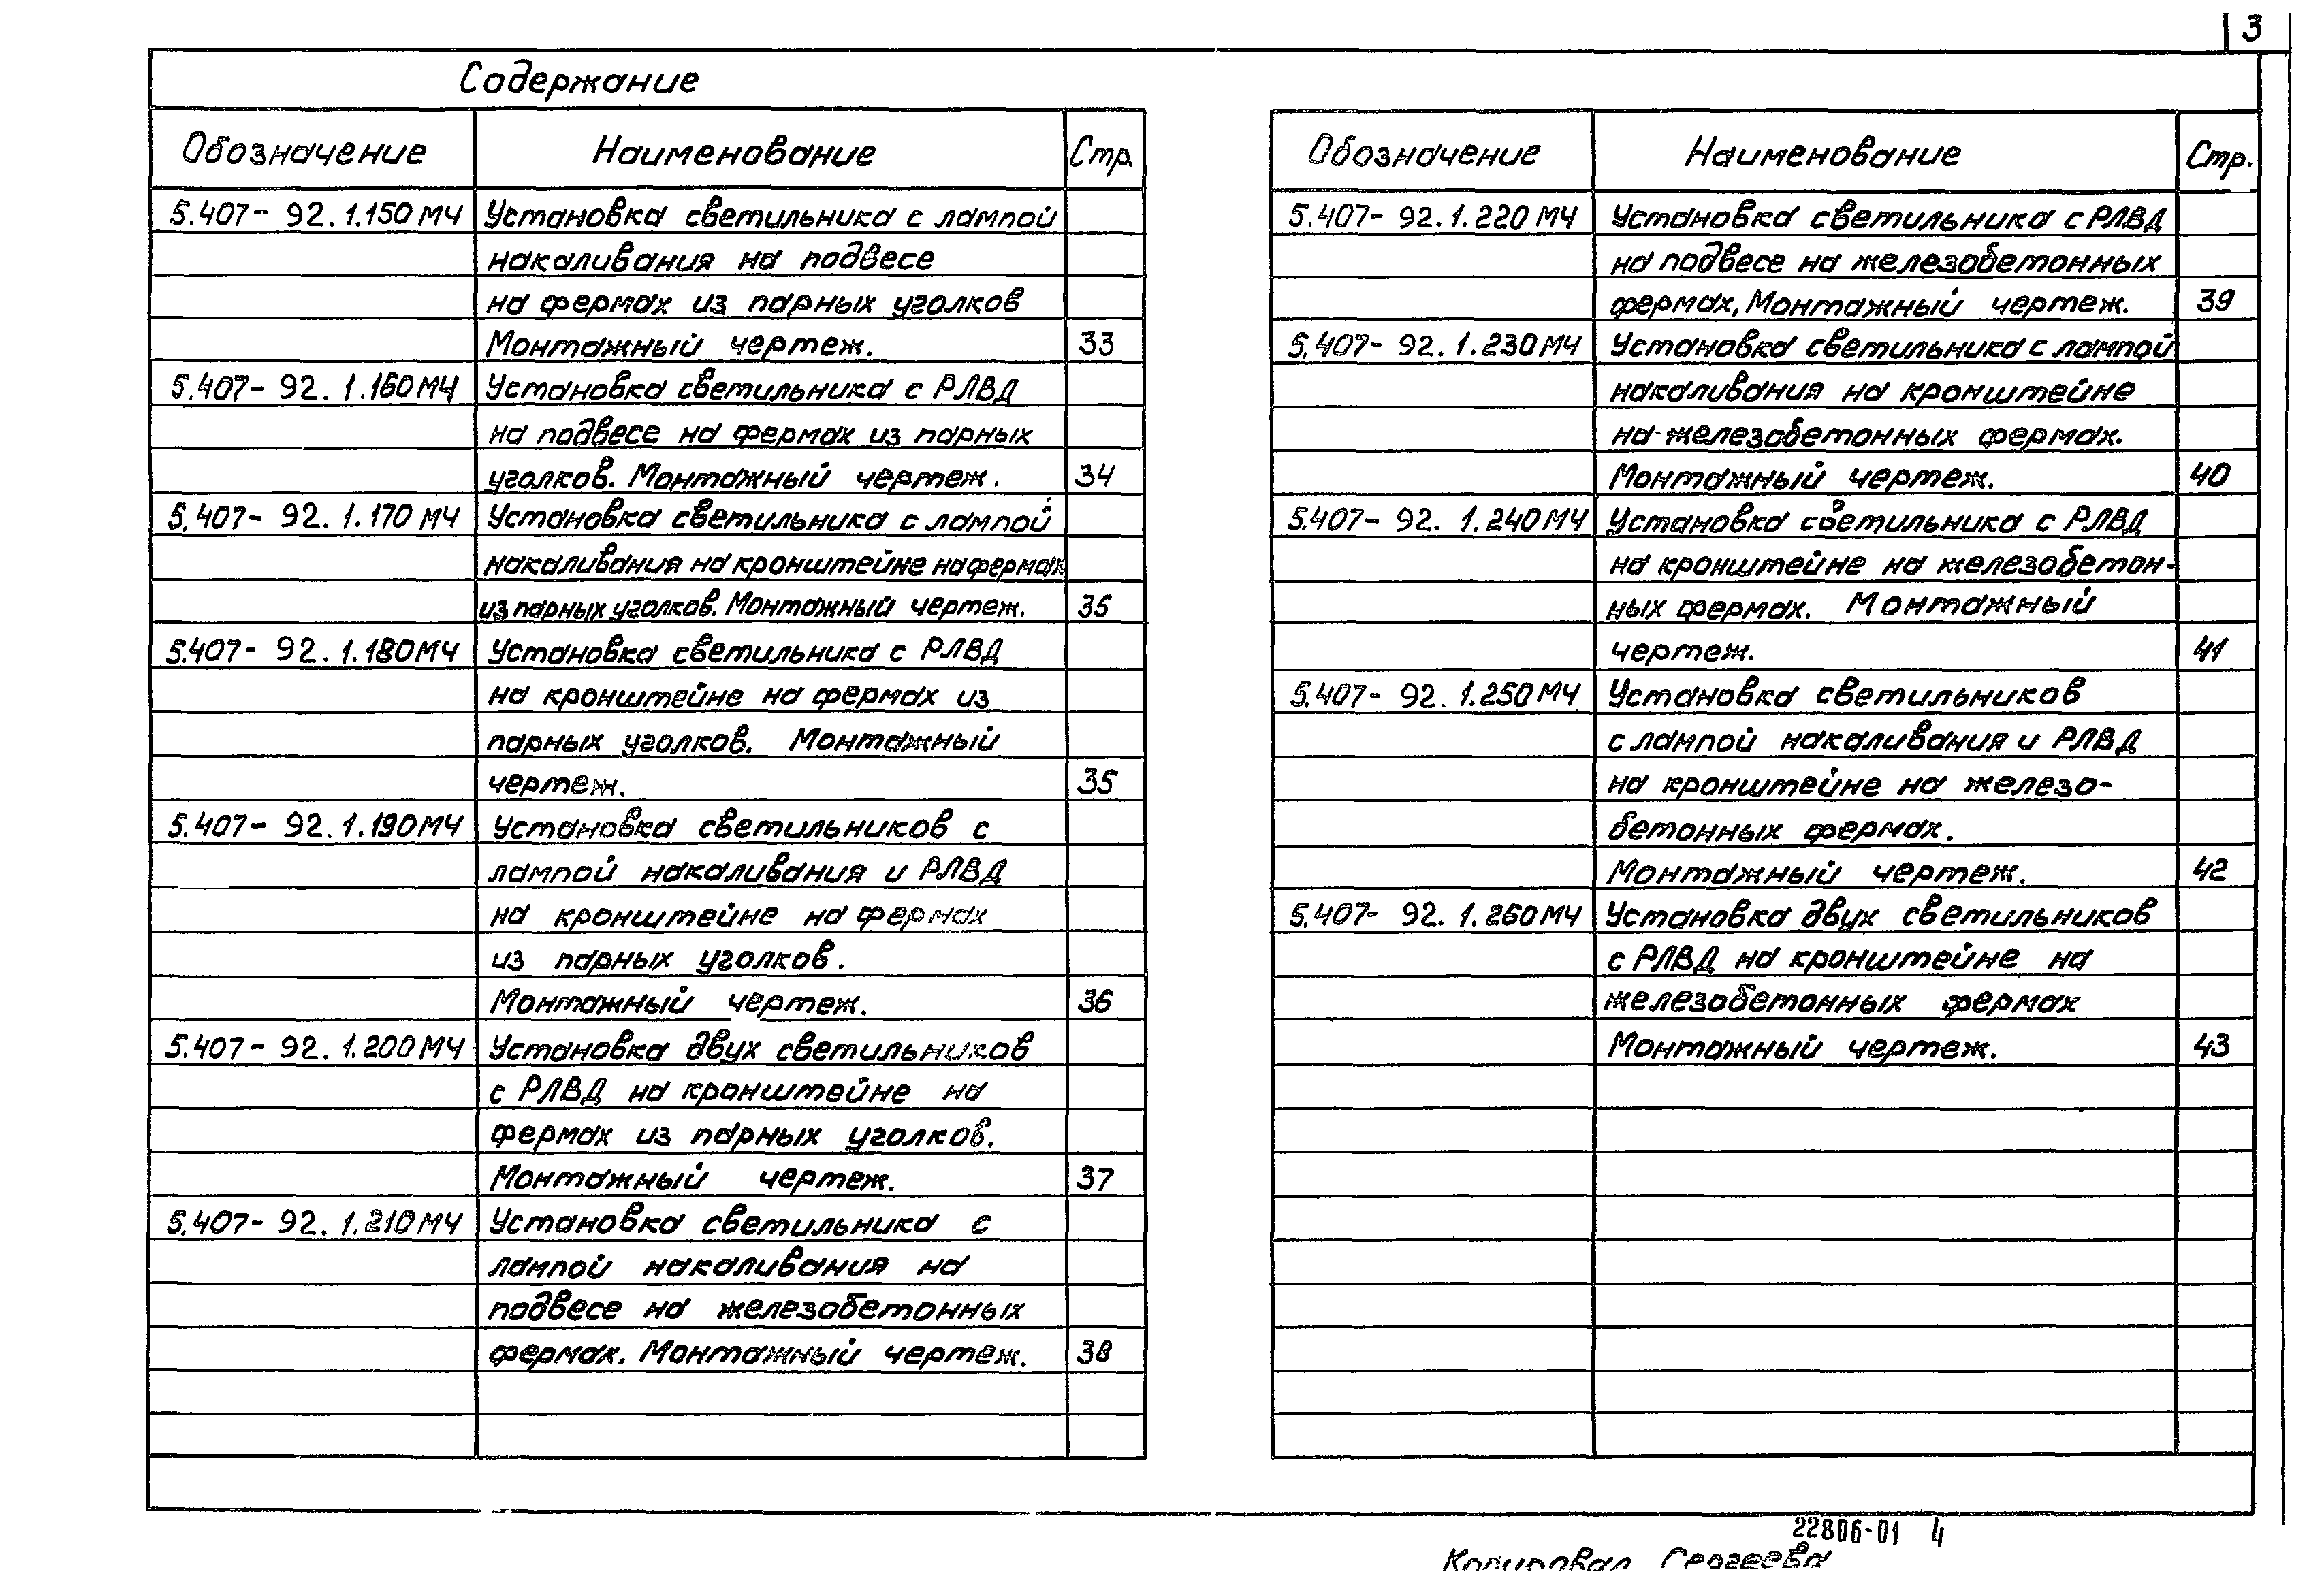 3
Содержание
Обозначение Наименование Стр.
5.407-92.1.150МЧ Установка светильника с лампой
накаливания на подвесе
на фермах из парных уголков
Монтажный чертеж. 33
5.407-92.1.160МЧ Установка светильника с РЛВД
на подвесе на фермах из парных
уголков. Монтажный чертеж. 34
5.407-92.1.170МЧ Установка светильника с лампой
накаливания на кронштейне на фермах
из парных уголков. Монтажный чертеж. 35
5.407-92.1.180МЧ Установка светильника с РЛВД
на кронштейне на фермах из
парных уголков. Монтажный
чертеж. 35
5.407-92.1.190МЧ Установка светильников с
лампой накаливания и РЛВД
на кронштейне на фермах
из парных уголков.
Монтажный чертеж. 36
5.407-92.1.200МЧ Установка двух светильников
с РЛВД на кронштейне на
фермах из парных уголков.
Монтажный чертеж. 37
5.407-92.1.210МЧ Установка светильника с
лампой накаливания на
подвесе на железобетонных
фермах. Монтажный чертеж. 38
Обозначение Наименование Стр.
5.407-92.1.220МЧ Установка светильника с РЛВД
на подвесе на железобетонных
фермах, Монтажный чертеж. 39
5.407-92.1.230МЧ Установка светильника с лампой
накаливания на кронштейне
на железобетонных фермах.
Монтажный чертеж. 40
5.407-92.1.240МЧ Установка светильника с РЛВД
на кронштейне на железобетон-
ных фермах. Монтажный
чертеж. 41
5.407-92.1.250МЧ Установка светильников
с лампой накаливания и РЛВД
на кронштейне на железо-
бетонных фермах.
Монтажный чертеж. 42
5.407-92.1.260МЧ Установка двух светильников
с РЛВД на кронштейне на
железобетонных фермах
Монтажный чертеж. 43
22806-01 4
Копировал Сергеева